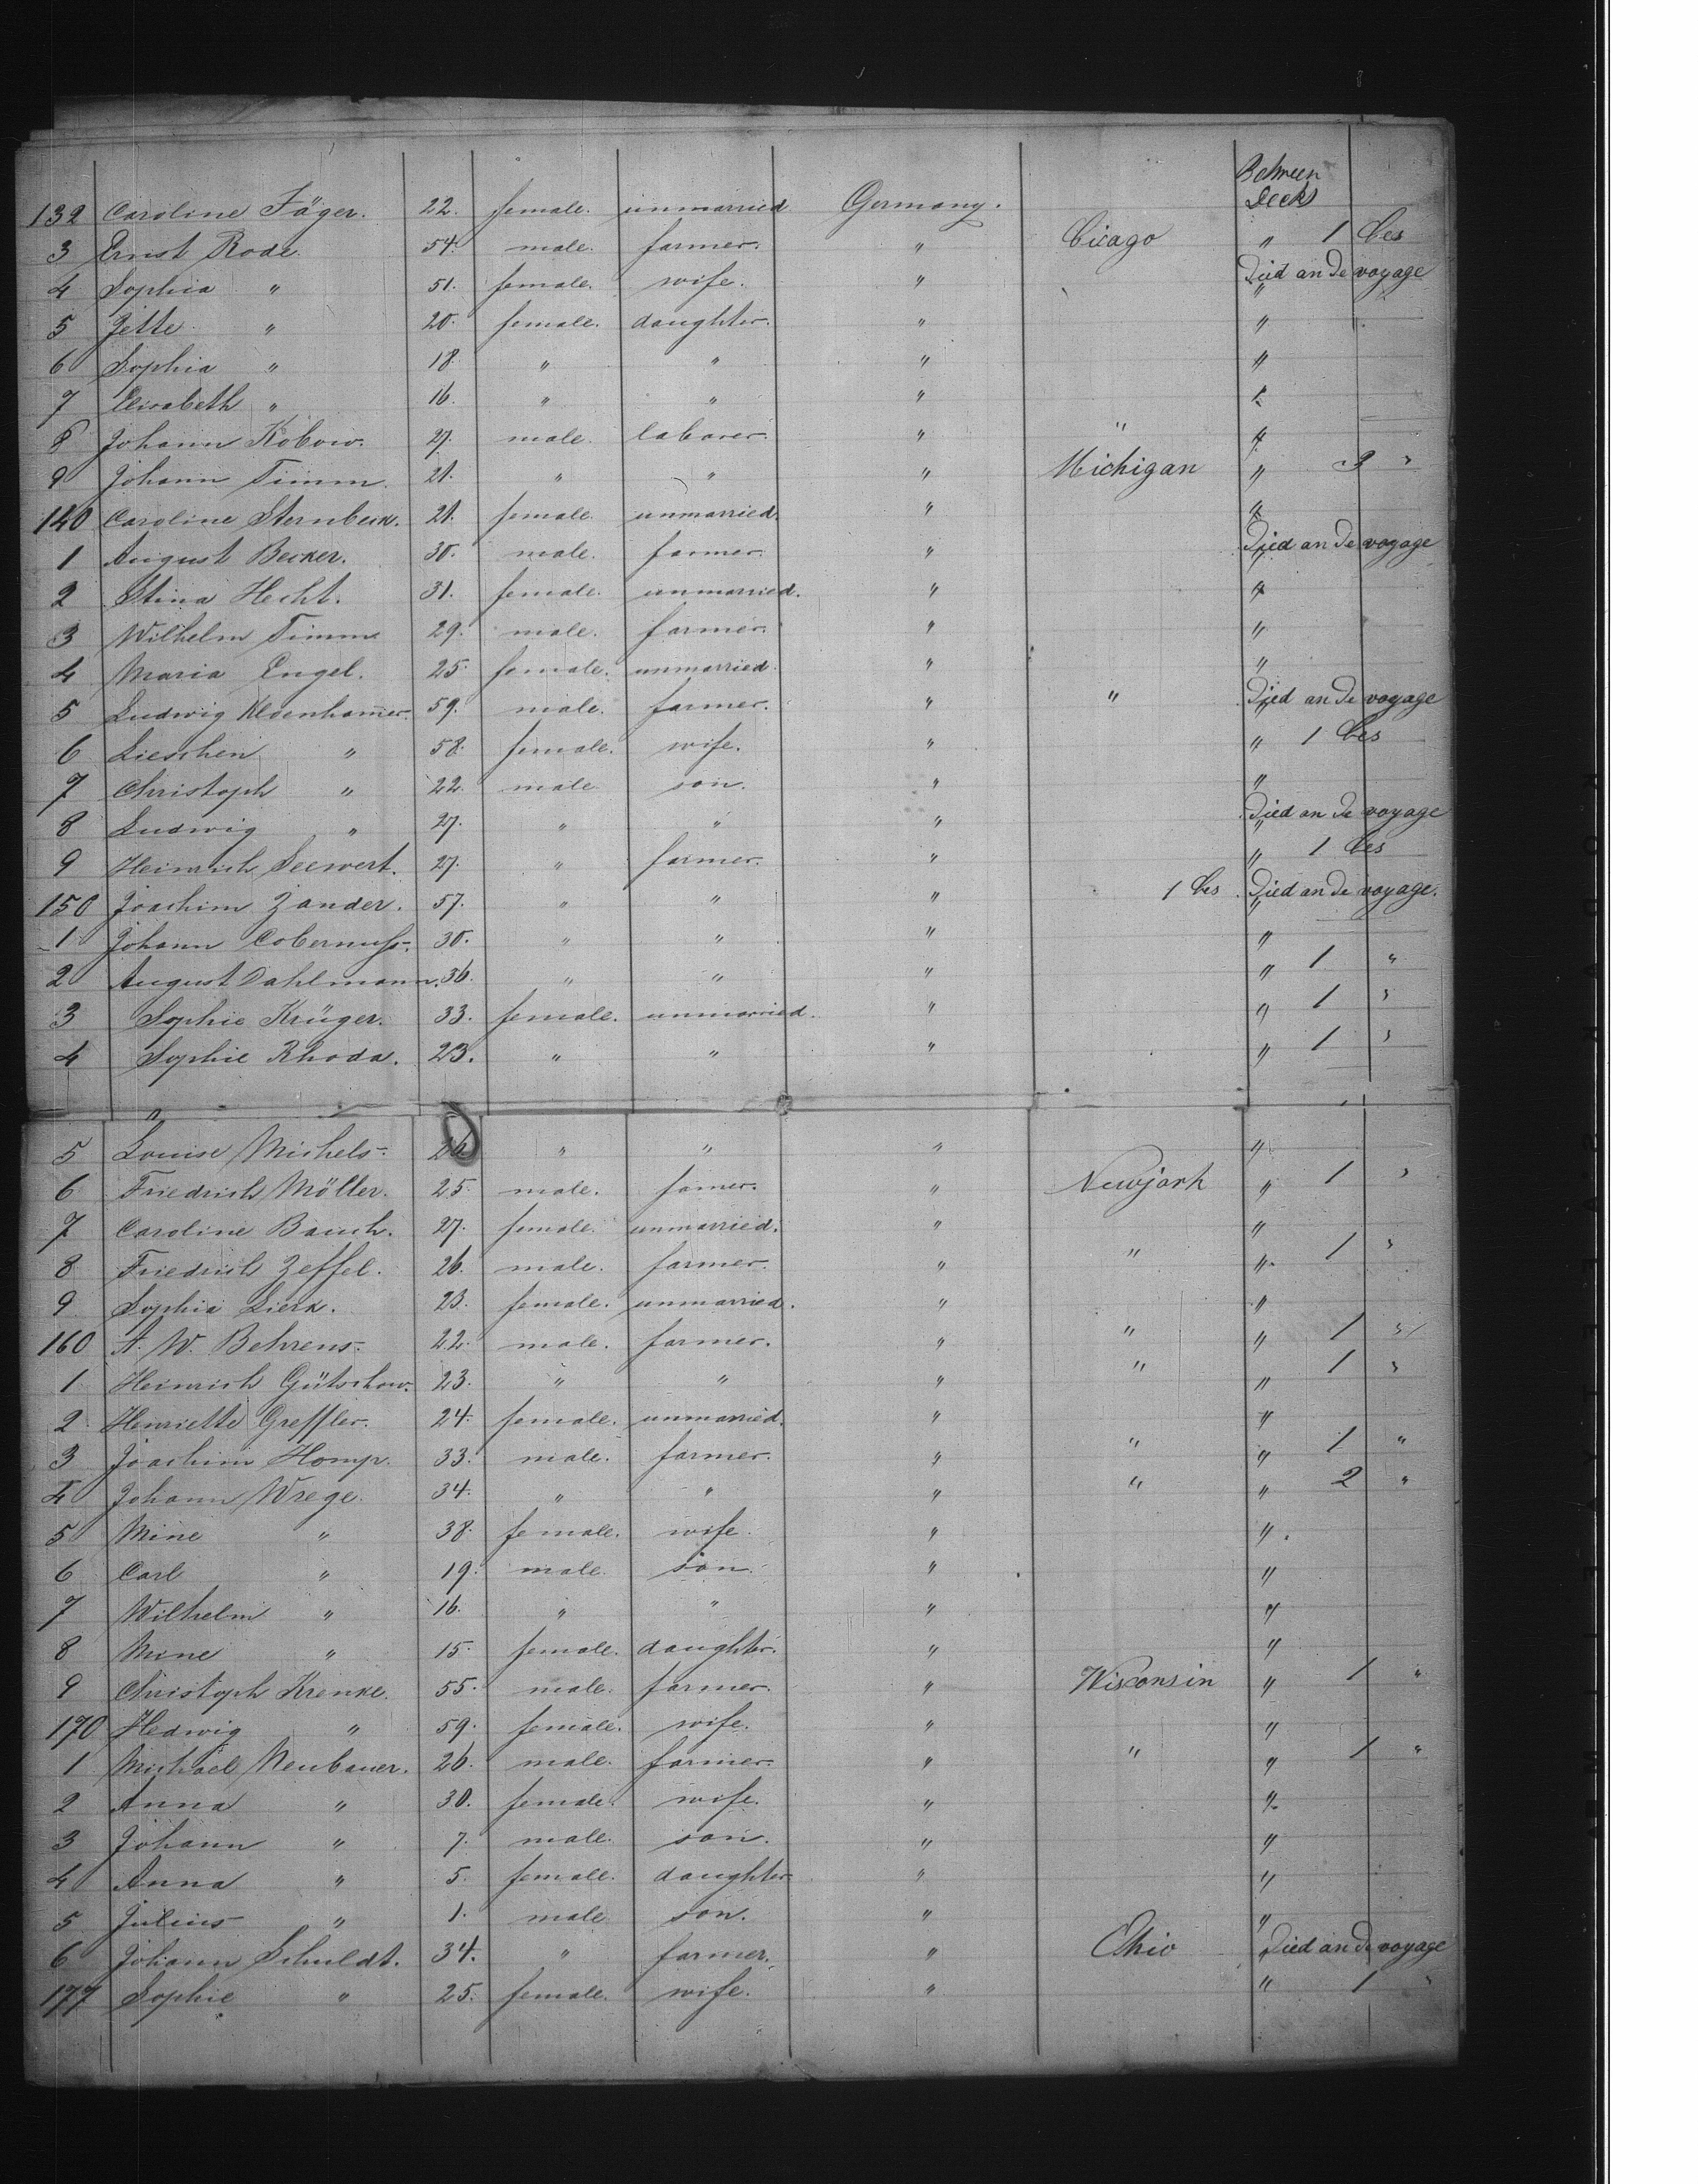 Between
132 Caroline Jäger. 22. female. unmarried Germany. Deck
3 Ernst Rode. 54. male. farmer. " Cicago " 1 Ces
4 Sophia " 51. female. wife. " Died an de voyage "
5 Jette " 20. female. daughter. " "
6 Sophia " 18. " " " "
7 Elisabeth " 16. " " " "
8 Johann Kobow. 27. male. laborer. " " "
9 Johann Timm. 21. " " " Michigan " 3 "
140 Caroline Sternbeck. 21. female. unmarried. " "
1 August Becker. 30. male. farmer. " Died an de voyage "
2 Stina Hecht. 31. female. unmarried. " "
3 Wilhelm Timm 29. male. farmer. " "
4 Maria Engel. 25. female. unmarried. " "
5 Ludwig 59. male. farmer. " " Died an de voyage "
6 Lieschen " 58. female. wife. " " 1 Ces
7 Christoph " 22. male. son. " "
8 Ludwig " 27. " " " Died an de voyage "
9 Heinrich Seewert. 27. " farmer. " " 1 Ces
150 Joachim Zander. 57. " " " 1 Ces Died an de voyage. "
1 Johann Cobernuss. 30. " " " "
2 August Dahlmann. 36. " " " " 1 "
3 Sophie Krüger. 33. female. unmarried. " " 1 "
4 Sophie Rhoda. 23. " " " " 1 "
5 Louise Michels. 26. " " " "
6 Friedrich Möller. 25. male. famer. " Newjork " 1 "
7 Caroline Bauch. 27. female. unmarried. " "
8 Friedrich Zeffel. 26. male. farmer. " " " 1 "
9 Sophia Lierk. 23. female. unmarried. " "
160 A. W. Behrens. 22. male. farmer. " " " 1 "
1 Heinrich Gütschow. 23. " " " " " 1 "
2 Henriette Greffler. 24. female. unmarried. " "
3 Joachim Homp. 33. male. farmer. " " " 1 "
4 Johann Wrege. 34. " " " " " 2 "
5 Mine " 38. female. wife. " "
6 Carl " 19. male. son. " "
7 Wilhelm " 16. " " " "
8 Mine " 15. female. daughter. " "
9 Christoph Krenke. 55. male. farmer. " Wisconsin " 1 "
170 Hedwig " 59. female. wife. " "
1 Michael Neubauer. 26. male. farmer. " " " 1 "
2 Anna " 30. female. wife. " "
3 Johann " 7. male. son. " "
4 Anna " 5. female. daughter. " "
5 Julius " 1. male. son. " "
6 Johann Schuldt. 34. " farmer. " Ohio " Died an de voyage
177 Sophie " 25. female. wife. " " 1 "